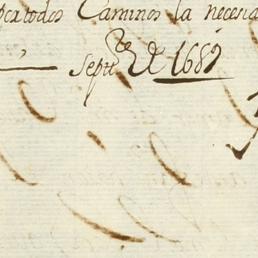 por todos Caminos la neceria
Septᵉ de 1689